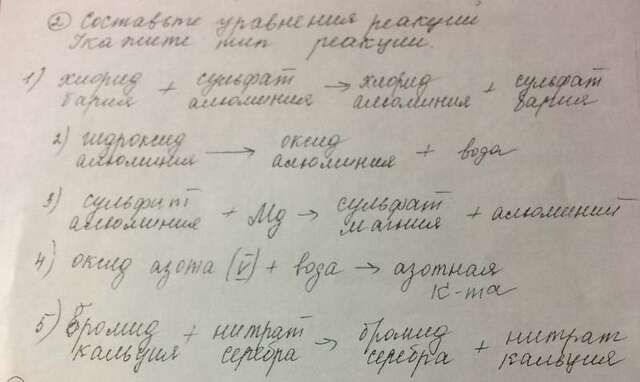 ② Составьте уравнения реакций
Укажите тип реакции.
1) хлорид бария + сульфат алюминия → хлорид алюминия + сульфат бария
2) гидроксид алюминия → оксид алюминия + вода
3) сульфат алюминия + Mg → сульфат магния + алюминий
4) оксид азота (V) + вода → азотная к-та
5) Бромид кальция + нитрат серебра → бромид серебра + нитрат кальция